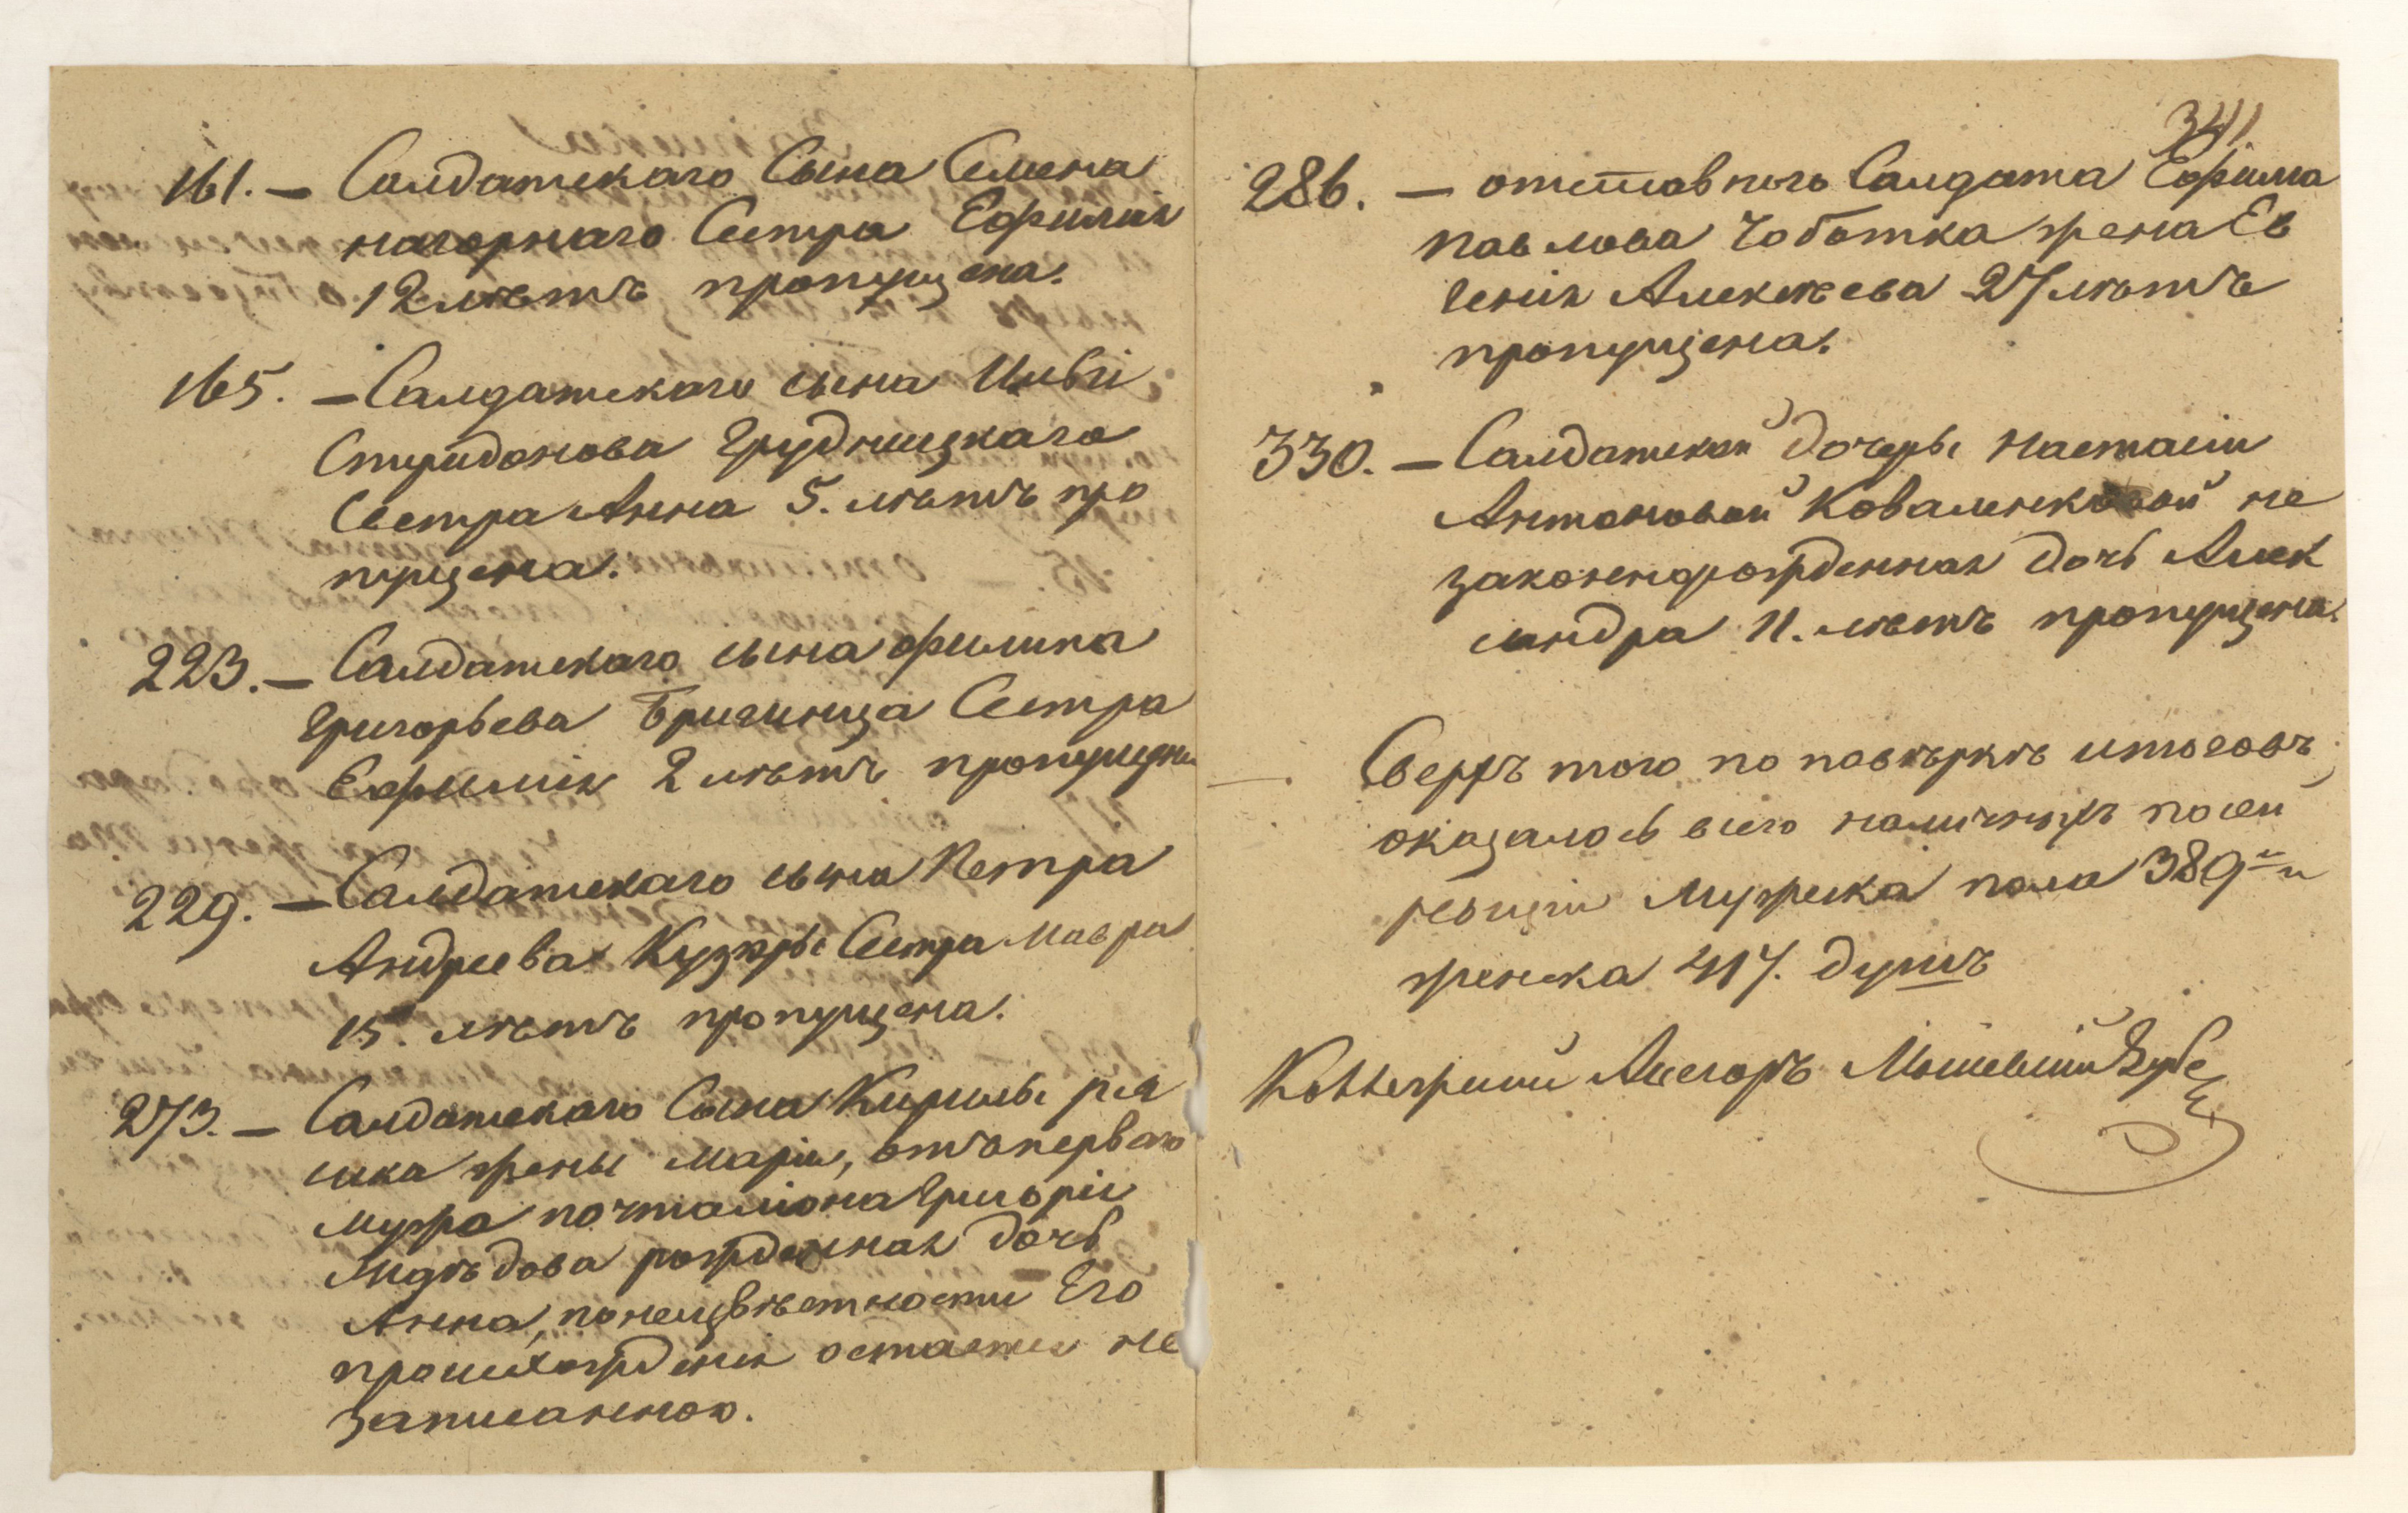 161. — Салдатскаго Сына Семена
нагорнаго Сестра Ефимия
12 летъ пропущена.
165. — Салдатскаго сына
Спиридонова Грудницкаго
Сестра Анна 5. летъ про
пущена.
223. — Салдатскаго сына филипа
Григорьева Бригинца Сестра
Ефимия 2 летъ пропущена
229. — Салдатскаго сына Петра
Андреева Сестра Мавра
15. летъ пропущена.
273. — Салдатскаго Сына Кирилы
жены Марии, отъ перваго
мужа почталиона Григория
рожденная дочь
Анна, по неизвестности Его
происхождения остается не
записанною.
341
286. — отставного Салдата Ефима
павлова Чоботка жена Ев
гения Алексеева 27 летъ
пропущена.
330. — Салдатской дочеры Настасии
Антоновой Коваленковой не
законнорожденная дочь Алек
сандра 11. летъ пропущена.
Сверхъ того по поверке итоговъ,
оказалось всего наличныхъ по сей
ревизии Мужеска пола 389 и
женска 417. душъ
Коллежский Асесоръ